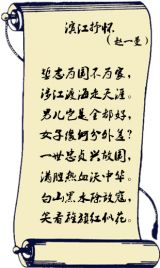 滨江抒怀
(赵一曼)
誓志为国不为家，
涉江渡海走天涯。
男儿岂是全都好，
女子缘何分外差？
一世忠贞兴故国，
满腔热血沃中华。
白山黑水除敌寇，
笑看旌旗红似花。